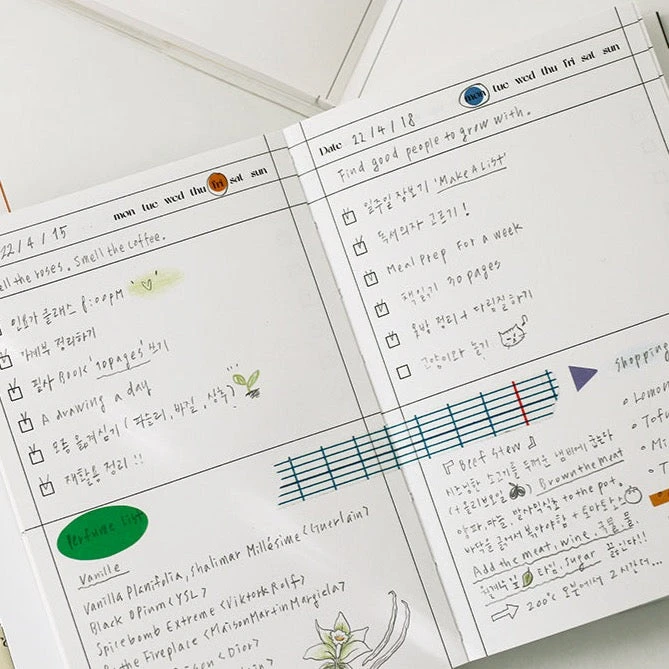 mon tue wed thu fri sat sun
22/4/15
ell the roses. Smell the coffee.
인요가 클래스 8:00PM
가계부 정리하기
필사 Book '10pages' 쓰기
A drawing a day
모종 옮겨심기 (파슬리, 바질, 상추)
재활용 정리!!
Perfume List
Vanille
Vanilla Planifolia, Shalimar Millésime <Guerlain>
Black Opium <YSL>
Spicebomb Extreme <Viktor Rolf>
the Fireplace <Maison Martin Margiela>
<Dior>
mon tue wed thu fri sat sun
Date 22/4/18
Find good people to grow with.
일주일 장보기 'Make A List'
독서의자 고르기!
Meal prep For a week
책읽기 30pages
옷방 정리 + 다림질하기
고양이와 놀기
shopping
Lemo
Tofu
Mi
T
『Beef Stew』
시즈닝한 고기를 두꺼운 냄비에 굽는다
(+올리브오일) Brown the meat
양파, 마늘, to the pot.
바닥을 긁어서 볶아야함 + 토마토소스
Add the meat, wine, 국물, 물
타임, sugar 끓인다!!
200°c 오븐에서 2시간